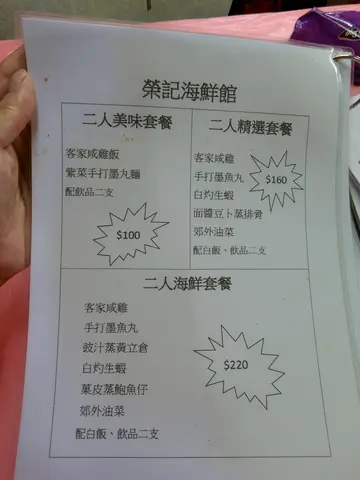 榮記海鮮館
二人美味套餐
客家咸雞飯
紫菜手打墨丸麵
配飲品二支
$100
二人精選套餐
客家咸雞
手打墨魚丸
白灼生蝦
面醬豆卜蒸排骨
郊外油菜
配白飯、飲品二支
$160
二人海鮮套餐
客家咸雞
手打墨魚丸
豉汁蒸黃立倉
白灼生蝦
菓皮蒸鮑魚仔
郊外油菜
配白飯、飲品二支
$220